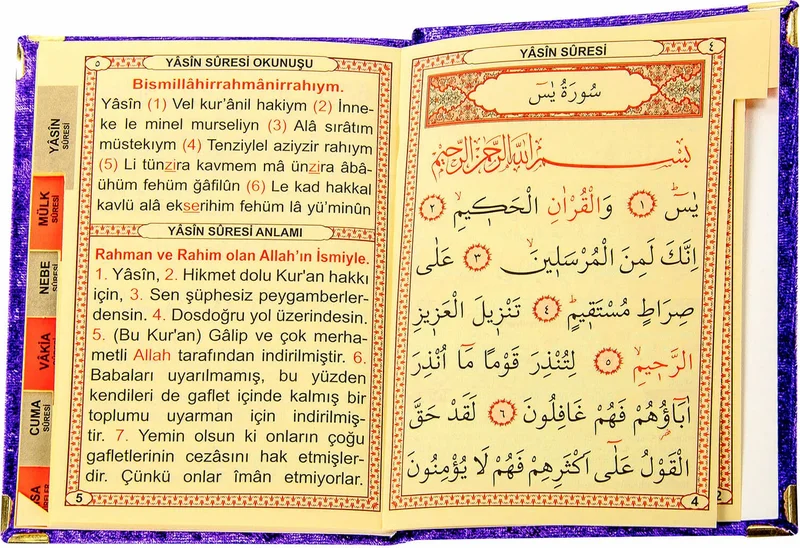 ٤
YÂSÎN SÛRESİ
سُورَةُ يٰسٓ
بِسْمِ اللّٰهِ الرَّحْمٰنِ الرَّحِيمِ
يٰسٓ ﴿١﴾ وَالْقُرْاٰنِ الْحَكِيمِۙ ﴿٢﴾
اِنَّكَ لَمِنَ الْمُرْسَلِينَۙ ﴿٣﴾ عَلٰى
صِرَاطٍ مُسْتَقِيمٍۜ ﴿٤﴾ تَنْزِيلَ الْعَزِيزِ
الرَّحِيمِۙ ﴿٥﴾ لِتُنْذِرَ قَوْمًا مَٓا اُنْذِرَ
اٰبَٓاؤُ۬هُمْ فَهُمْ غَافِلُونَ ﴿٦﴾ لَقَدْ حَقَّ
الْقَوْلُ عَلٰٓى اَكْثَرِهِمْ فَهُمْ لَا يُؤْمِنُونَ
4
2
٥
YÂSÎN SÛRESİ OKUNUŞU
Bismillâhirrahmânirrahıym.
Yâsîn (1) Vel kur’ânil hakiym (2) İnne-
ke le minel murseliyn (3) Alâ sırâtım
müstekıym (4) Tenziylel aziyzir rahıym
(5) Li tünzira kavmem mâ ünzira âbâ-
ühüm fehüm ğâfilûn (6) Le kad hakkal
kavlü alâ ekserihim fehüm lâ yü’minûn
YÂSÎN SÛRESİ ANLAMI
Rahman ve Rahim olan Allah’ın İsmiyle.
1. Yâsîn, 2. Hikmet dolu Kur'an hakkı
için, 3. Sen şüphesiz peygamberler-
densin. 4. Dosdoğru yol üzerindesin.
5. (Bu Kur'an) Gâlip ve çok merha-
metli Allah tarafından indirilmiştir. 6.
Babaları uyarılmamış, bu yüzden
kendileri de gaflet içinde kalmış bir
toplumu uyarman için indirilmiş-
tir. 7. Yemin olsun ki onların çoğu
gafletlerinin cezâsını hak etmişler-
dir. Çünkü onlar îmân etmiyorlar.
5
YÂSÎN
SÛRESİ
MÜLK
SÛRESİ
NEBE
SÛRESİ
VÂKIA
SÛRESİ
CUMA
SÛRESİ